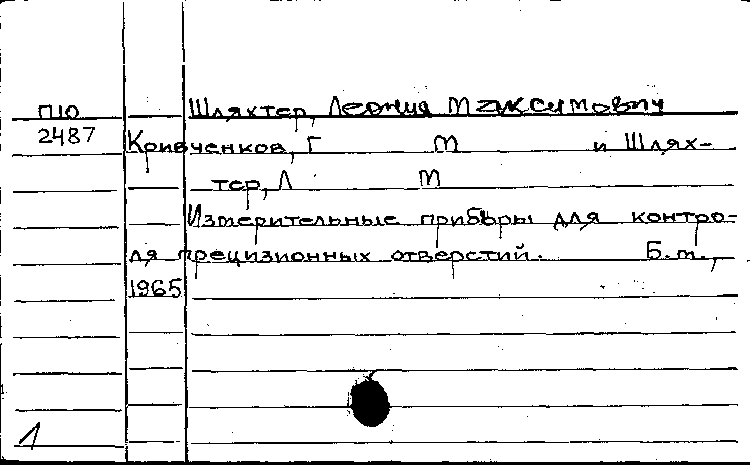 Шляхтер, Леонид Максимович
П10
2487
Кривченков, Г М и Шлях-
тер, Л М
Измерительные приборы для контро-
ля прецизионных отверстий. Б.м.,
1965
1